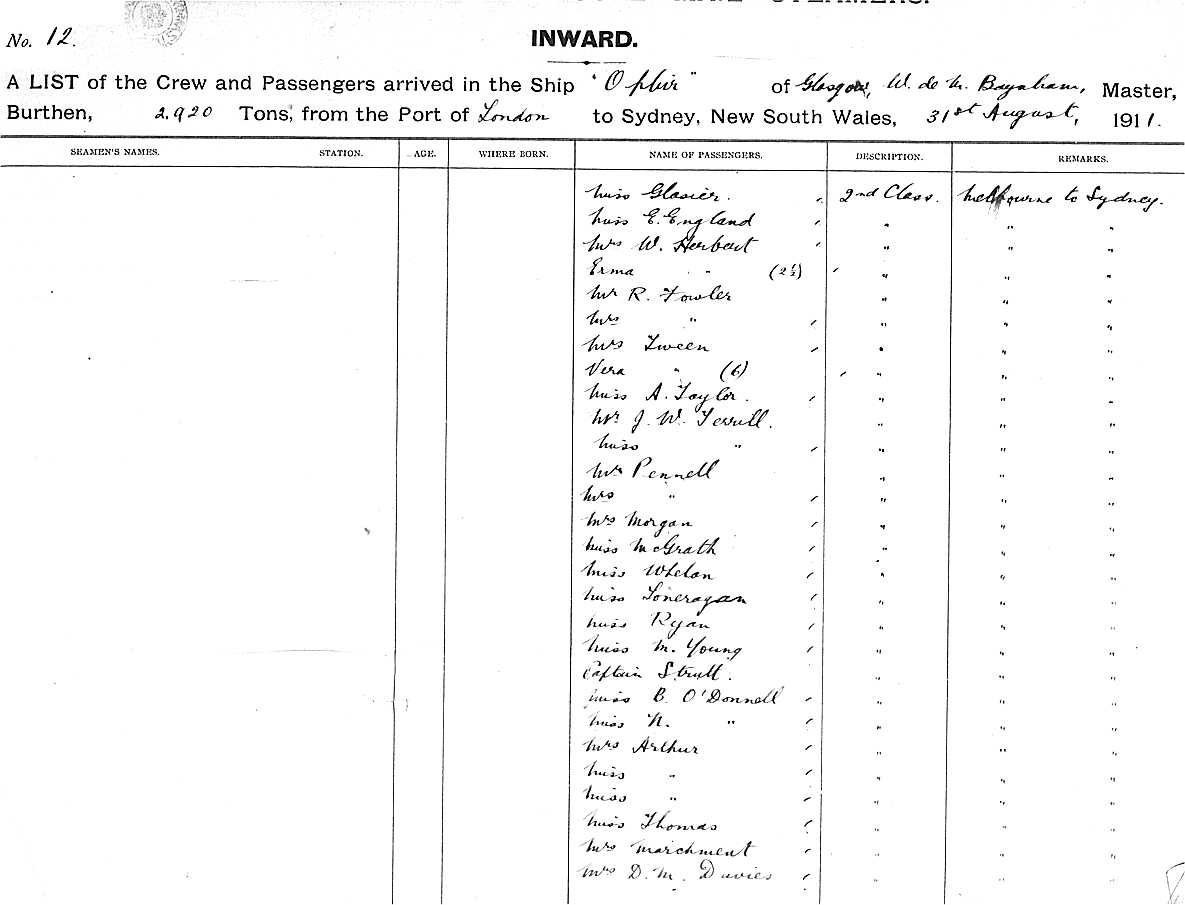 No. 12.
INWARD.
A LIST of the Crew and Passengers arrived in the Ship "Ophir" of Glasgow, W. de M. Baynham, Master,
Burthen, 2,920 Tons, from the Port of London to Sydney, New South Wales, 31st August, 1911.
SEAMEN'S NAMES. STATION. AGE. WHERE BORN. NAME OF PASSENGERS. DESCRIPTION. REMARKS.
Miss Glasier. 2nd Class. Melbourne to Sydney.
Miss E. England " " "
Mrs W. Herbert " " "
Erma " (2½) " " "
Mr R. Fowler " " "
Mrs " " " "
Mrs Tween " " "
Vera " (6) " " "
Miss A. Taylor. " " "
Mr. J. W. Terrill. " " "
Miss " " " "
Mr Pennell " " "
Mrs " " " "
Mrs Morgan " " "
Miss McGrath " " "
Miss Whelan " " "
Miss Loneragan " " "
Miss Ryan " " "
Miss M. Young " " "
Captain Strutt. " " "
Miss B. O'Donnell " " "
Miss N. " " " "
Mrs Arthur " " "
Miss " " " "
Miss " " " "
Miss Thomas " " "
Mrs Marchment " " "
Mrs D. M. Davies " " "